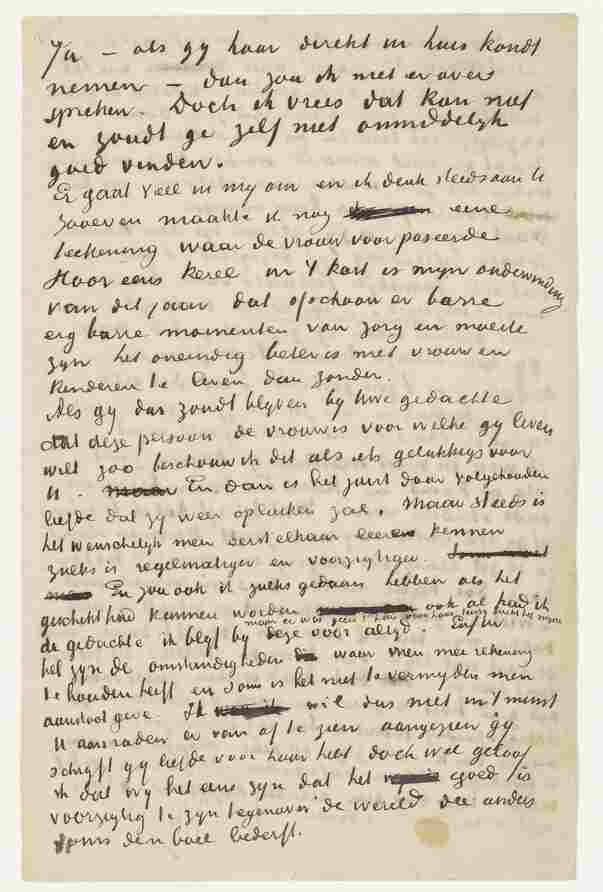 Ja – als gy haar direkt in huis kondt
nemen – dan zou ik niet er over
spreken. Doch ik vrees dat kan niet
en zoudt ge zelf niet onmiddelyk
goed vinden.
Er gaat veel in my om en ik denk steeds aan U
zooeven maakte ik nog eene
teekening waar de vrouw voor poseerde
Hoor eens kerel in 't kort is mijn ondervinding
van dit jaar dat ofschoon er barre
erg barre momenten van zorg en moeite
zyn het oneindig beter is met vrouw en
kinderen te leven dan zonder.
Als gy dus zoudt blyven by Uwe gedachte
dat deze persoon de vrouw is voor welke gy leven
wilt zoo beschouw ik dit als iets gelukkigs voor
U. En dan is het juist door volgehouden
liefde dat zy weer opluiken zal. Maar steeds is
het wenschelyk men eerst elkaar leere kennen
zulks is regelmatiger en voorzigtiger.
En zou ook ik zulks gedaan hebben als het
geschikt had kunnen worden ook al had ik
maar er was geen t huis voor haar, thuis mocht het niet
de gedachte ik blyf by deze voor altyd. Enfin
het zyn de omstandigheden waar men mee rekening
te houden heeft en soms is het niet te vermyden men
aanstoot geve. Ik wil dus niet in 't minst
U aanraden er van af te zien aangezien gy
schryft gy liefde voor haar hebt doch wel geloof
ik dat wy het eens zyn dat het goed is
voorzigtig te zyn tegenover de wereld die anders
soms den boel bederft.